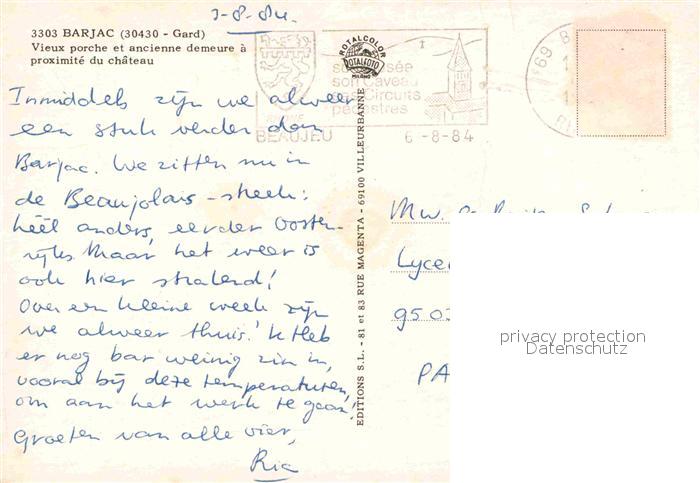 3-8-84.
3303 BARJAC (30430 - Gard)
Vieux porche et ancienne demeure à
proximité du château
ROTALCOLOR
ROTALFOTO
MILANO
son Caveau
ses Circuits
pédestres
RHONE
BEAUJEU
6-8-84
69
Inmiddels zijn we alweer
een stuk verder dan
Barjac. We zitten nu in
de Beaujolais-streek:
héél anders, eerder Oosten-
rijks. Maar het weer is
ook hier stralend!
Over een kleine week zijn
we alweer thuis! Ik heb
er nog bar weinig zin in,
vooral bij deze temperaturen,
om aan het werk te gaan!
Groeten van alle vier,
Ria
EDITIONS S.L. - 81 et 83 RUE MAGENTA - 69100 VILLEURBANNE
Mw.
Lyce
950
PA
privacy protection
Datenschutz